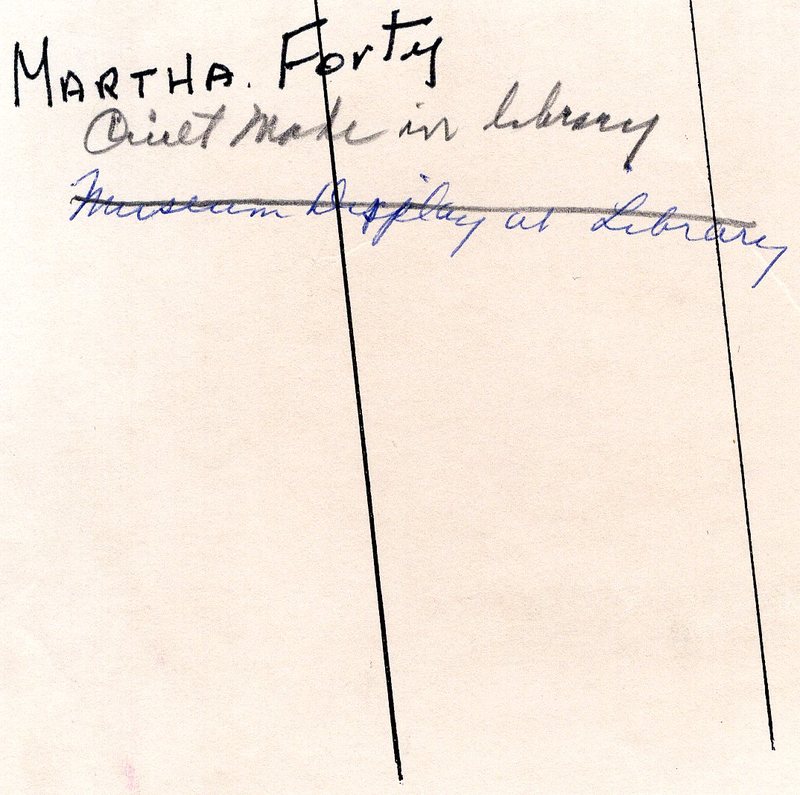 MARTHA. Forty
Quilt Made in library
Museum Display at Library